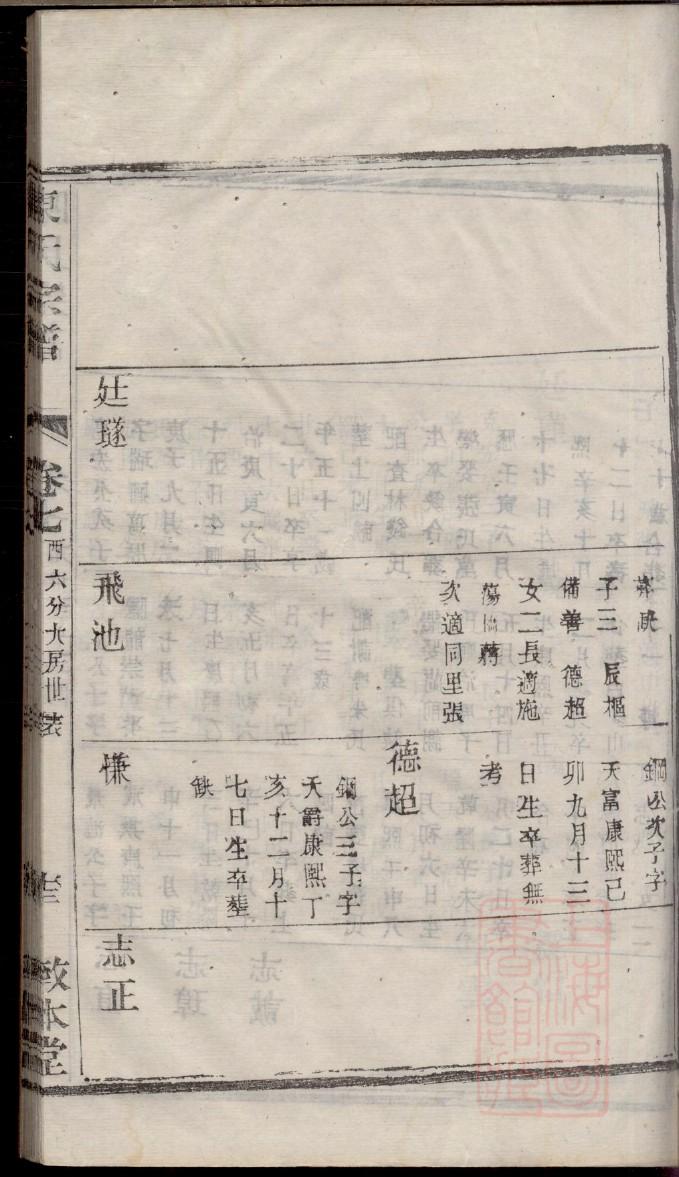 鋼公次子字
天富康熙己
卯九月十三
日生卒葬無
考
子三 辰樞
備善 德超
女二長適施
蕩橋蔣
次適同里張
德超
鋼公三子字
天爵康熙丁
亥十二月十
七日生卒塟
缺
廷璲
飛池
慊
志正
陳氏宗譜
卷七
西六分大房世表
敦本堂